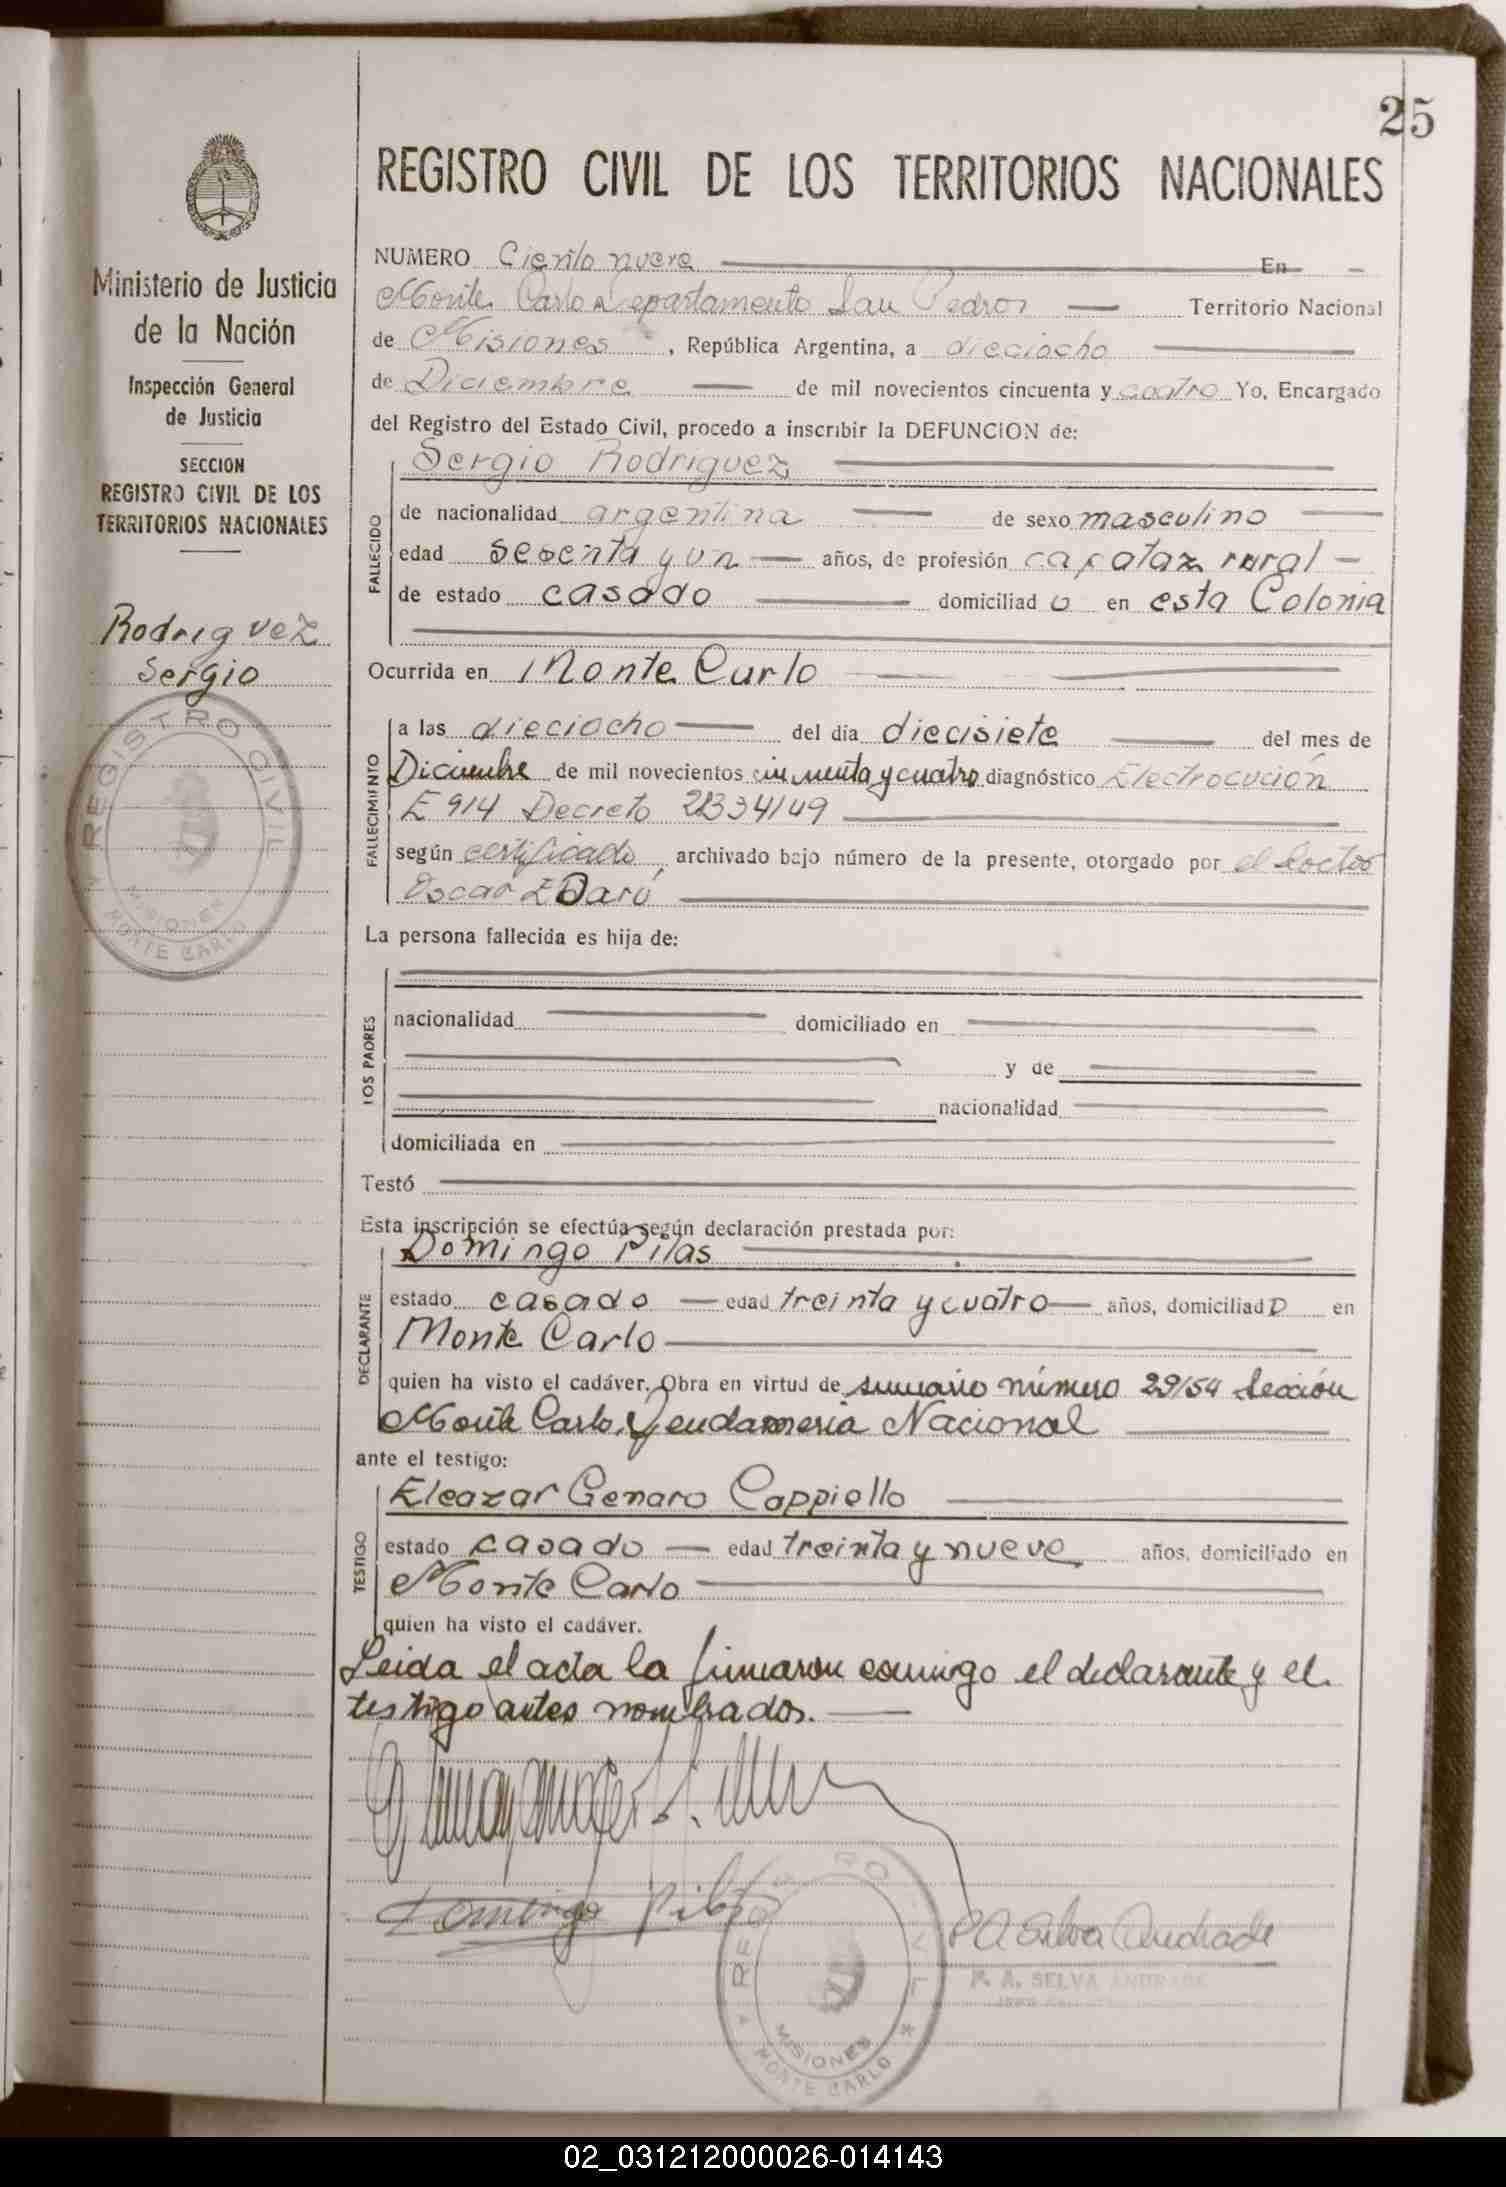 25
Ministerio de Justicia
de la Nación
Inspección General
de Justicia
SECCION
REGISTRO CIVIL DE LOS
TERRITORIOS NACIONALES
Rodriguez
Sergio
REGISTRO CIVIL
MISIONES
MONTE CARLO
REGISTRO CIVIL DE LOS TERRITORIOS NACIONALES
NUMERO Ciento nueve En
Monte Carlo Departamento San Pedro Territorio Nacional
de Misiones, República Argentina, a dieciocho
de Diciembre de mil novecientos cincuenta y cuatro Yo, Encargado
del Registro del Estado Civil, procedo a inscribir la DEFUNCION de:
Sergio Rodriguez
FALLECIDO
de nacionalidad argentina de sexo masculino
edad sesenta y un años, de profesión capataz rural
de estado casado domiciliado en esta Colonia
Ocurrida en Monte Carlo
FALLECIMIENTO
a las dieciocho del dia diecisiete del mes de
Diciembre de mil novecientos cincuenta y cuatro diagnóstico Electrocución
E 914 Decreto 21334/49
según certificado, archivado bajo número de la presente, otorgado por el Doctor
Oscar E Darú
La persona fallecida es hija de:
LOS PADRES
nacionalidad domiciliado en
y de
nacionalidad
domiciliada en
Testó
Esta inscripción se efectúa según declaración prestada por:
Domingo Pilas
DECLARANTE
estado casado edad treinta y cuatro años, domiciliado en
Monte Carlo
quien ha visto el cadáver. Obra en virtud de sumario número 29/54 Sección
Monte Carlo, Gendarmeria Nacional
ante el testigo:
Eleazar Genaro Cappiello
TESTIGO
estado casado edad treinta y nueve años, domiciliado en
Monte Carlo
quien ha visto el cadáver.
Leida el acta la firmaron conmigo el declarante y el
testigo antes nombrados.
Domingo Pilas
P A Selva Andrade
P. A. SELVA ANDRADE
MISIONES
MONTE CARLO
02_031212000026-014143